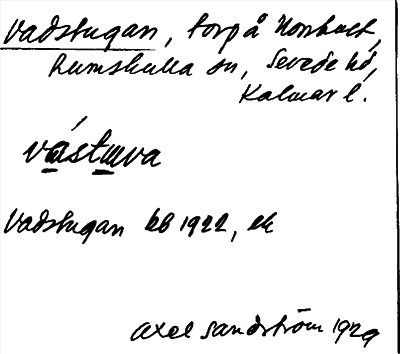 Vadstugan, torp å Norrhult,
Rumskulla sn, Sevede hd,
Kalmar l.
vástuva
Vadstugan kb 1922, ek
Axel Sandström 1929